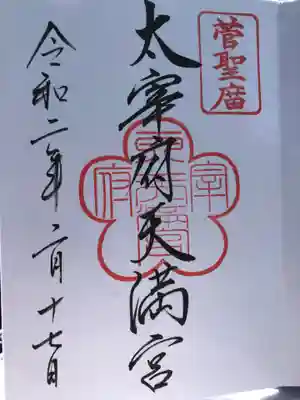 菅聖庿
太宰府天満宮
令和二年二月十七日